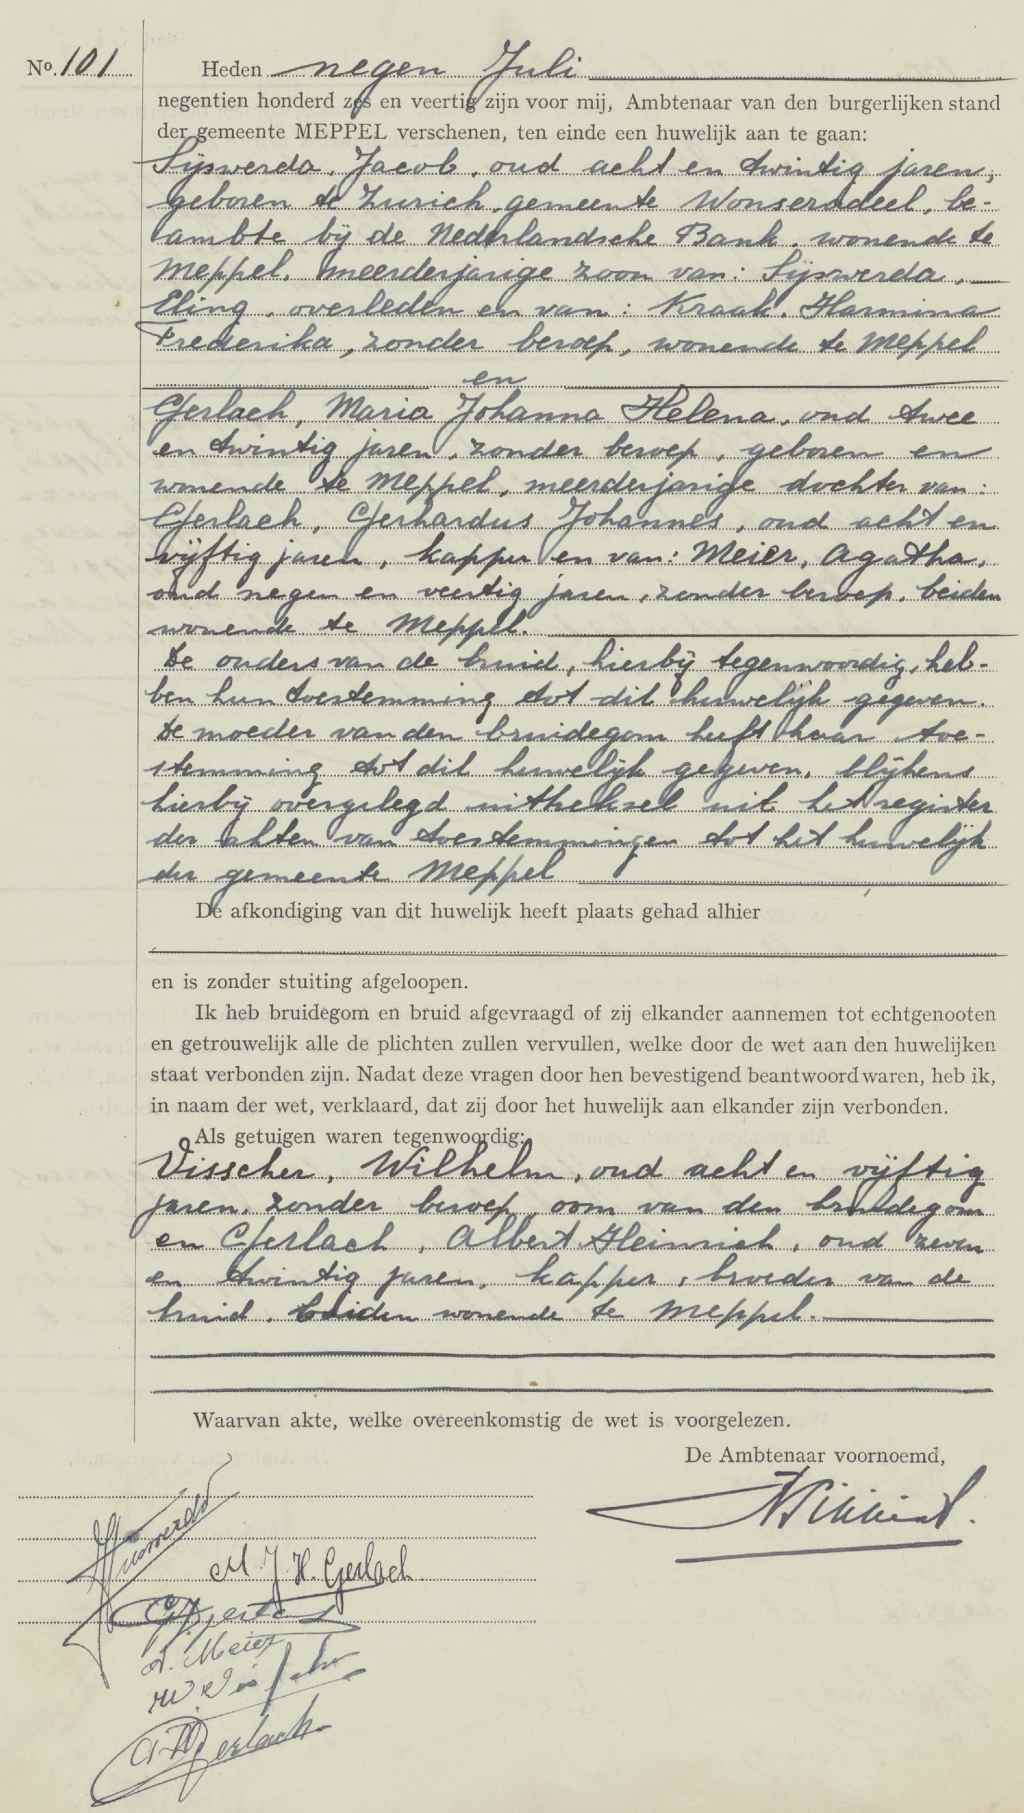 No. 101
Heden negen Juli
negentien honderd zes en veertig zijn voor mij, Ambtenaar van den burgerlijken stand
der gemeente MEPPEL verschenen, ten einde een huwelijk aan te gaan:
Sijswerda, Jacob, oud acht en twintig jaren,
geboren te Zurich, gemeente Wonseradeel, be-
ambte bij de Nederlandsche Bank, wonende te
Meppel, meerderjarige zoon van: Sijswerda,
Eling, overleden en van: Kraak, Harmina
Frederika, zonder beroep, wonende te Meppel
en
Gerlach, Maria Johanna Helena, oud twee
en twintig jaren, zonder beroep, geboren en
wonende te Meppel, meerderjarige dochter van:
Gerlach, Gerhardus Johannes, oud acht en
vijftig jaren, kapper en van: Meier, Agatha,
oud negen en veertig jaren, zonder beroep, beiden
wonende te Meppel.
De ouders van de bruid, hierbij tegenwoordig, heb-
ben hun toestemming tot dit huwelijk gegeven.
De moeder van den bruidegom heeft haar toe-
stemming tot dit huwelijk gegeven, blijkens
hierbij overgelegd uittreksel uit het register
der akten van toestemmingen tot het huwelijk
der gemeente Meppel
De afkondiging van dit huwelijk heeft plaats gehad alhier
en is zonder stuiting afgeloopen.
Ik heb bruidegom en bruid afgevraagd of zij elkander aannemen tot echtgenooten
en getrouwelijk alle de plichten zullen vervullen, welke door de wet aan den huwelijken
staat verbonden zijn. Nadat deze vragen door hen bevestigend beantwoord waren, heb ik,
in naam der wet, verklaard, dat zij door het huwelijk aan elkander zijn verbonden.
Als getuigen waren tegenwoordig:
Visscher, Wilhelm, oud acht en vijftig
jaren, zonder beroep, oom van den bruidegom
en Gerlach, Albert Heinrich, oud zeven
en twintig jaren, kapper, broeder van de
bruid, beiden wonende te Meppel.
Waarvan akte, welke overeenkomstig de wet is voorgelezen.
De Ambtenaar voornoemd,
M. J. H. Gerlach
A. Meier
W Visscher
A H Gerlach